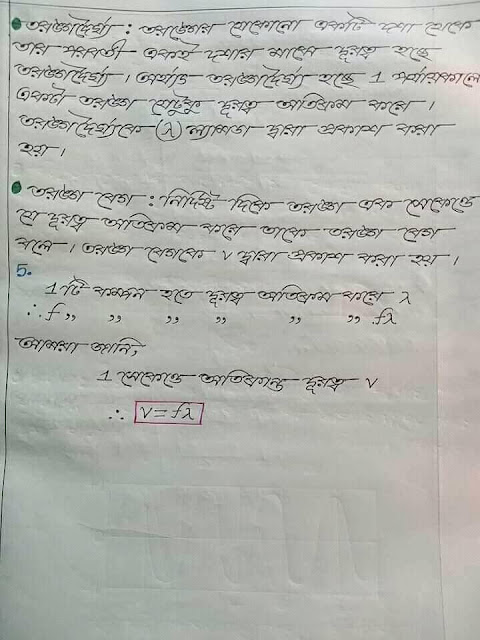 তরঙ্গদৈর্ঘ্য : তরঙ্গের যেকোনো একটি দশা থেকে
তার পরবর্তী একই দশার মাঝে দূরত্ব হচ্ছে
তরঙ্গদৈর্ঘ্য । অর্থাৎ তরঙ্গদৈর্ঘ্য হচ্ছে 1 পর্যায়কালে
একটা তরঙ্গ যেটুকু দূরত্ব অতিক্রম করে ।
তরঙ্গদৈর্ঘ্যকে (λ) ল্যামডা দ্বারা প্রকাশ করা
হয় ।
তরঙ্গ বেগ : নির্দিষ্ট দিকে তরঙ্গ এক সেকেন্ডে
যে দূরত্ব অতিক্রম করে তাকে তরঙ্গ বেগ
বলে । তরঙ্গ বেগকে v দ্বারা প্রকাশ করা হয় ।
5.
1 টি কম্পন হতে দূরত্ব অতিক্রম করে λ
∴ f ,, ,, ,, ,, ,, ,, fλ
আমরা জানি,
1 সেকেন্ডে অতিক্রান্ত দূরত্ব v
∴ v = fλ